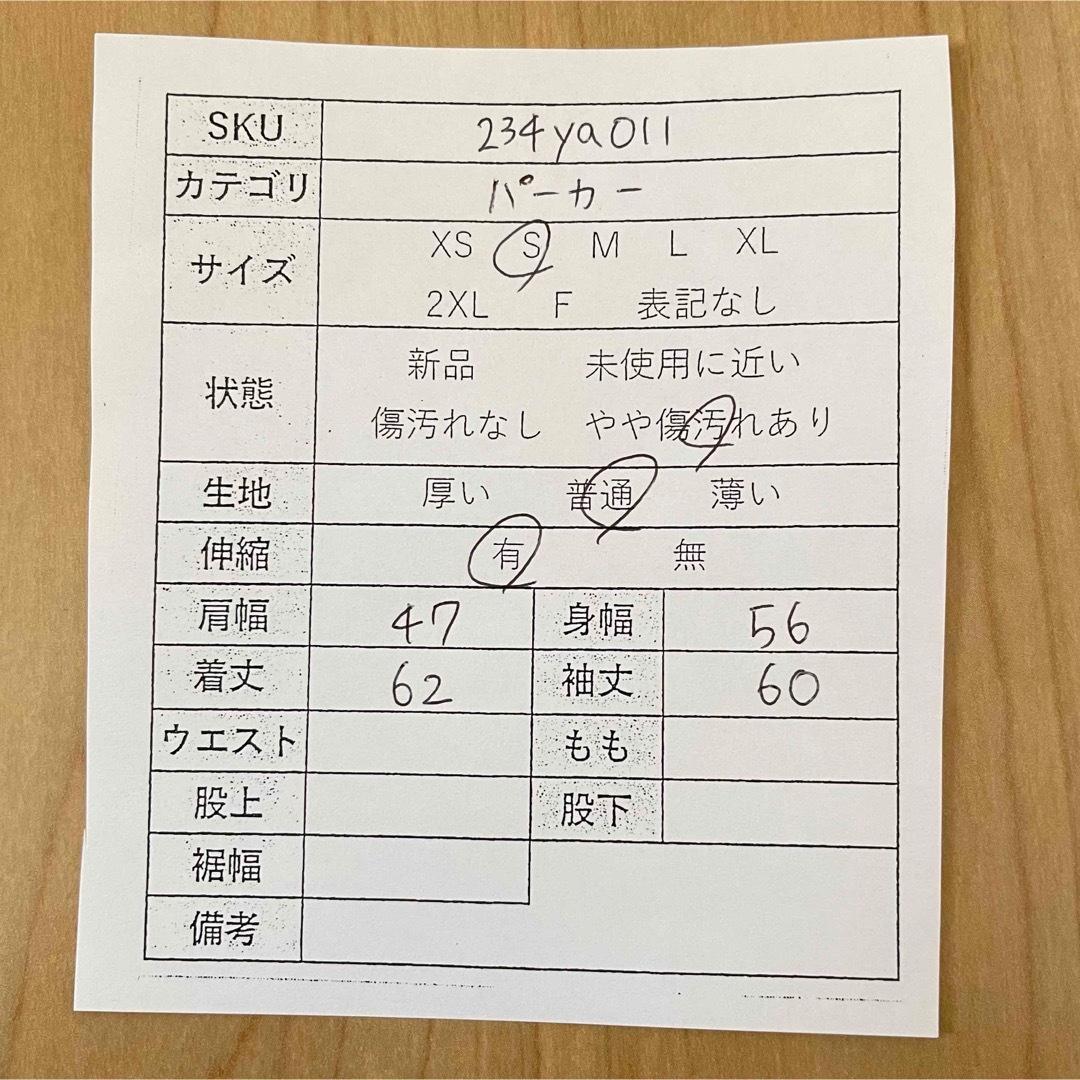 SKU 234ya011
カテゴリ パーカー
サイズ XS S M L XL
2XL F 表記なし
状態 新品 未使用に近い
傷汚れなし やや傷汚れあり
生地 厚い 普通 薄い
伸縮 有 無
肩幅 47 身幅 56
着丈 62 袖丈 60
ウエスト もも
股上 股下
裾幅
備考